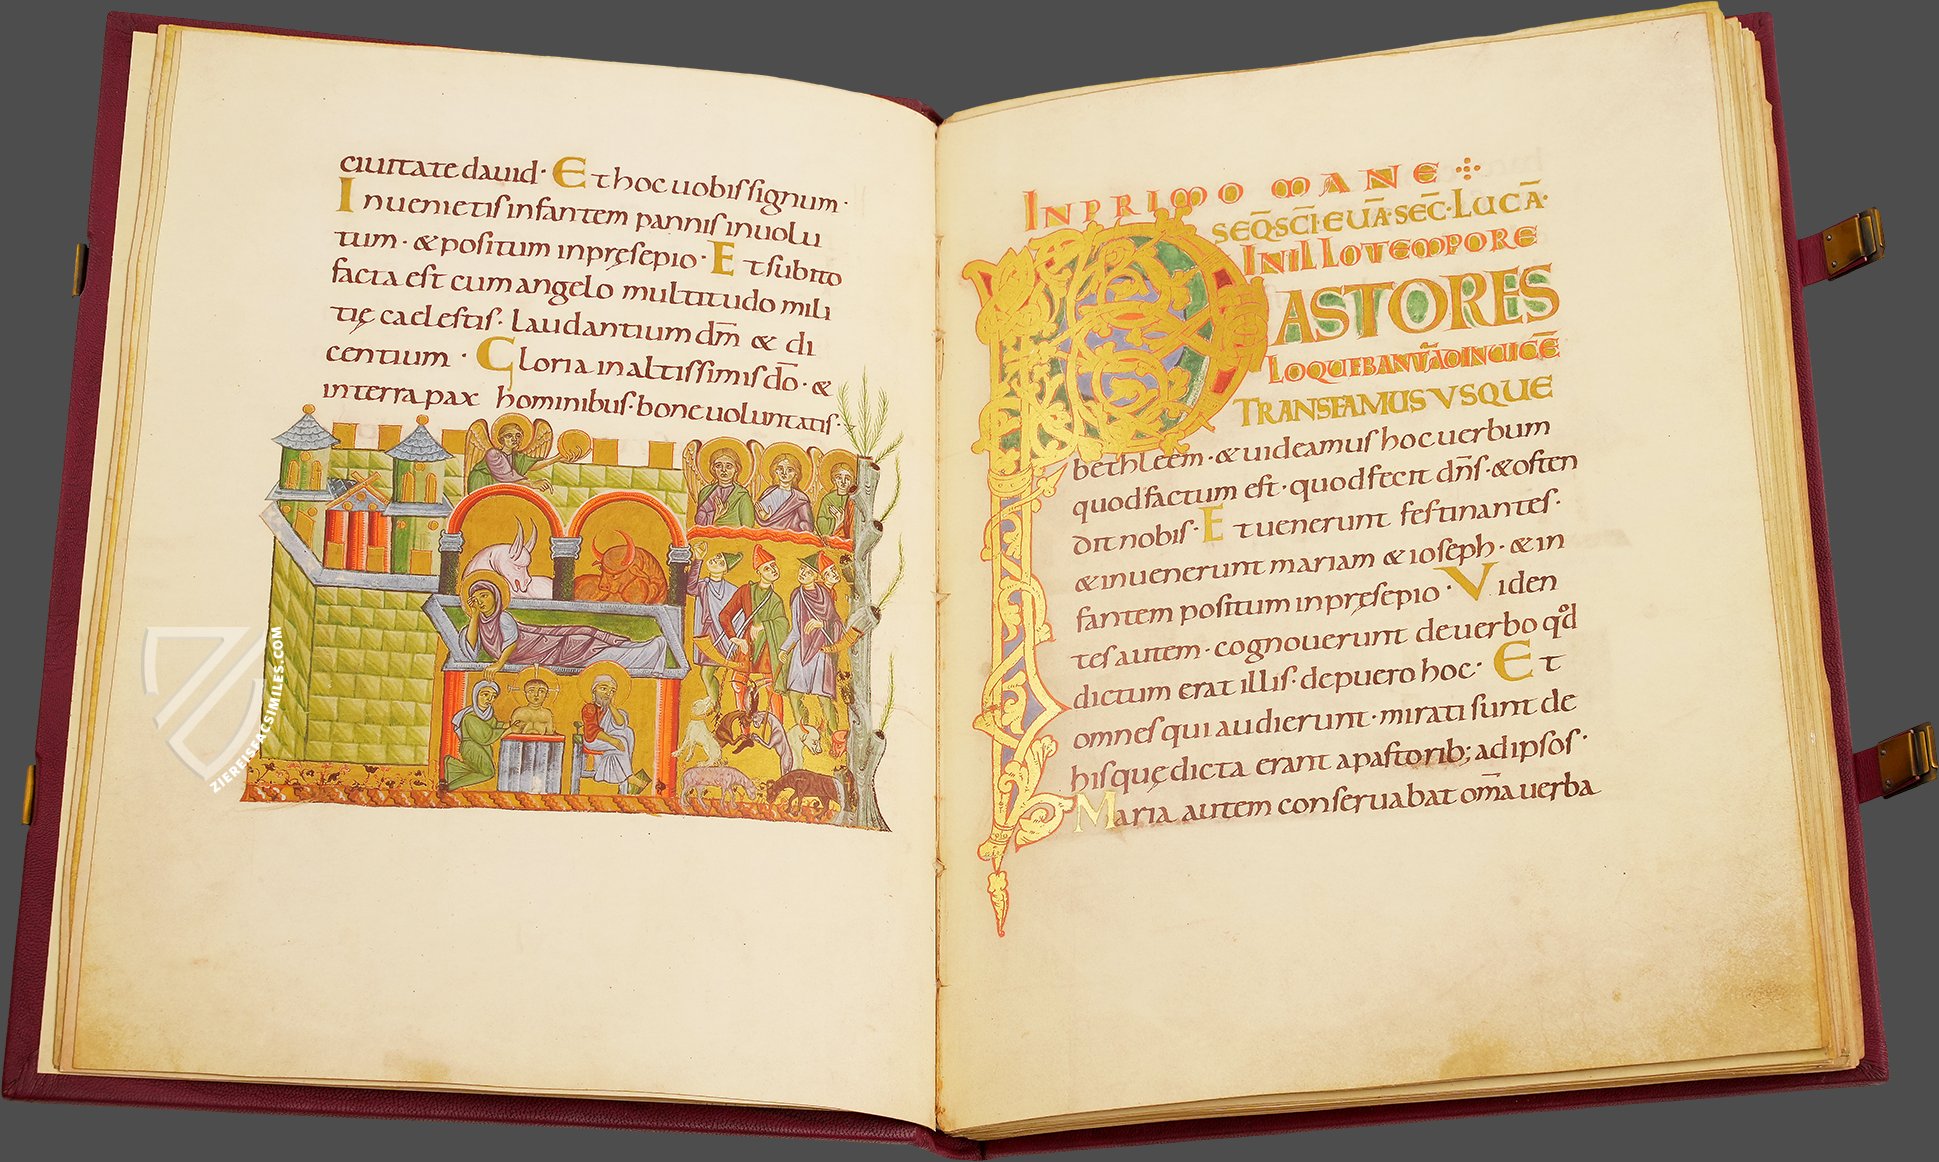 ciuitate dauid· Et hoc uobis signum·
Inuenietis infantem pannis inuolu
tum· & positum inpręsepio· Et subito
facta est cum angelo multitudo mili
tię caelestis· laudantium dm̄ & di
centium· Gloria in altissimis do̅· &
in terra pax hominibus· bonę uoluntatis·
ZIEREISFACSIMILES.COM
INPRIMO MANE
SEQ̄ SC̄I EUĀ· SEC̄· LUCĀ·
IN ILLO TEMPORE
PASTORES
LOQUEBANT̄ AD INUICĒ
TRANSEAMUS VSQUE
bethleem· & uideamus hoc uerbum
quod factum est· quod fecit dn̄s· & osten
dit nobis· Et uenerunt festinantes·
& inuenerunt mariam & ioseph· & in
fantem positum inpręsepio· Viden
tes autem· cognouerunt de uerbo qd̊
dictum erat illis· de puero hoc· Et
omnes qui audierunt· mirati sunt de
his quę dicta erant a pastorib; ad ipsos·
Maria autem conseruabat om̄a uerba